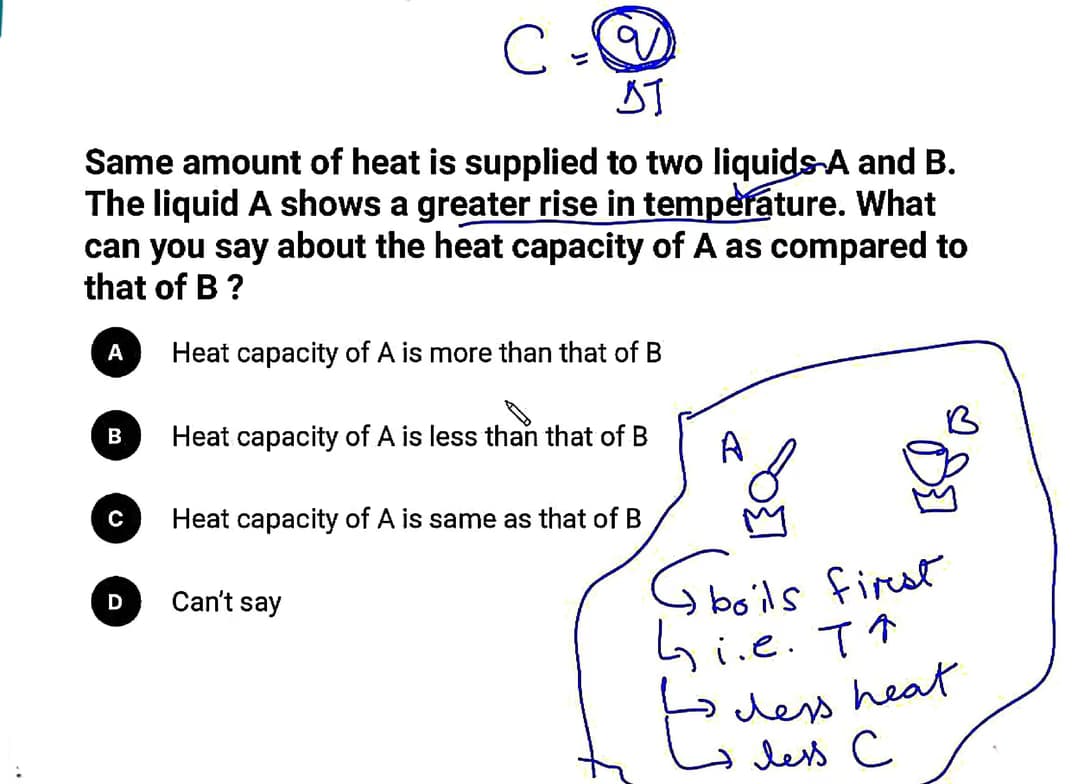 C = q
ΔT
Same amount of heat is supplied to two liquids A and B.
The liquid A shows a greater rise in temperature. What
can you say about the heat capacity of A as compared to
that of B ?
A Heat capacity of A is more than that of B
B Heat capacity of A is less than that of B
C Heat capacity of A is same as that of B
D Can't say
A B
boils first
i.e. T ↑
less heat
less C